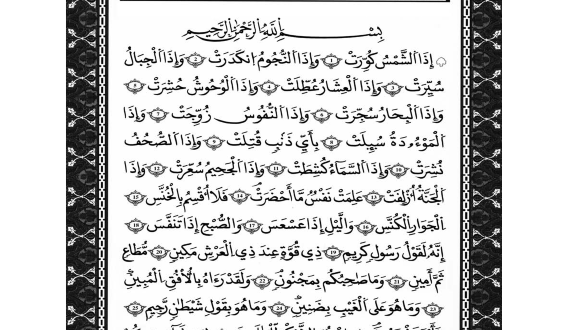 بِسْمِ اللَّهِ الرَّحْمَٰنِ الرَّحِيمِ
إِذَا الشَّمْسُ كُوِّرَتْ ١ وَإِذَا النُّجُومُ انكَدَرَتْ ٢ وَإِذَا الْجِبَالُ
سُيِّرَتْ ٣ وَإِذَا الْعِشَارُ عُطِّلَتْ ٤ وَإِذَا الْوُحُوشُ حُشِرَتْ ٥
وَإِذَا الْبِحَارُ سُجِّرَتْ ٦ وَإِذَا النُّفُوسُ زُوِّجَتْ ٧ وَإِذَا
الْمَوْءُودَةُ سُئِلَتْ ٨ بِأَيِّ ذَنْبٍ قُتِلَتْ ٩ وَإِذَا الصُّحُفُ
نُشِرَتْ ١٠ وَإِذَا السَّمَاءُ كُشِطَتْ ١١ وَإِذَا الْجَحِيمُ سُعِّرَتْ ١٢ وَإِذَا
الْجَنَّةُ أُزْلِفَتْ ١٣ عَلِمَتْ نَفْسٌ مَّا أَحْضَرَتْ ١٤ فَلَا أُقْسِمُ بِالْخُنَّسِ ١٥
الْجَوَارِ الْكُنَّسِ ١٦ وَاللَّيْلِ إِذَا عَسْعَسَ ١٧ وَالصُّبْحِ إِذَا تَنَفَّسَ ١٨
إِنَّهُ لَقَوْلُ رَسُولٍ كَرِيمٍ ١٩ ذِي قُوَّةٍ عِندَ ذِي الْعَرْشِ مَكِينٍ ٢٠ مُّطَاعٍ
ثَمَّ أَمِينٍ ٢١ وَمَا صَاحِبُكُم بِمَجْنُونٍ ٢٢ وَلَقَدْ رَءَاهُ بِالْأُفُقِ الْمُبِينِ
٢٣ وَمَا هُوَ عَلَى الْغَيْبِ بِضَنِينٍ ٢٤ وَمَا هُوَ بِقَوْلِ شَيْطَانٍ رَّجِيمٍ ٢٥